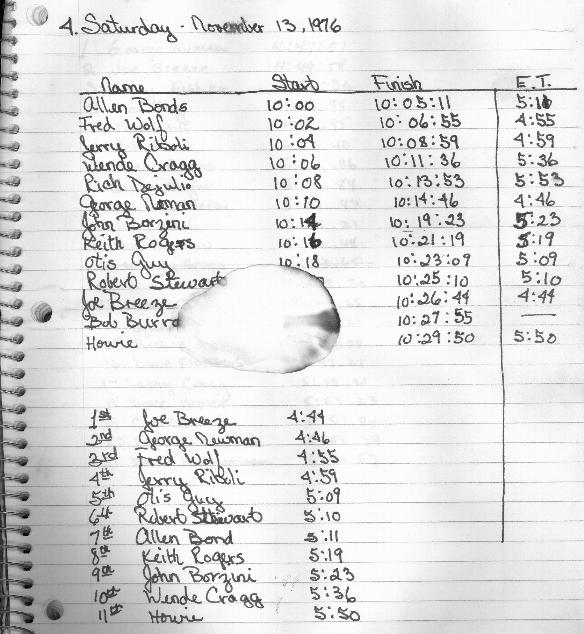 4. Saturday - November 13, 1976
Name Start Finish E.T.
Allen Bonds 10:00 10:05:11 5:11
Fred Wolf 10:02 10:06:55 4:55
Jerry Riboli 10:04 10:08:59 4:59
Wende Cragg 10:06 10:11:36 5:36
Rich Dezulio 10:08 10:13:53 5:53
George Noman 10:10 10:14:46 4:46
John Borzini 10:14 10:19:23 5:23
Keith Rogers 10:16 10:21:19 5:19
Otis Guy 10:18 10:23:09 5:09
Robert Stewart 10:25:10 5:10
Joe Breeze 10:26:44 4:44
Bob Burro 10:27:55 —
Howie 10:29:50 5:50
1st Joe Breeze 4:44
2nd George Newman 4:46
3rd Fred Wolf 4:55
4th Jerry Riboli 4:59
5th Otis Guy 5:09
6th Robert Stewart 5:10
7th Allen Bond 5:11
8th Keith Rogers 5:19
9th John Borzini 5:23
10th Wende Cragg 5:36
11th Howie 5:50